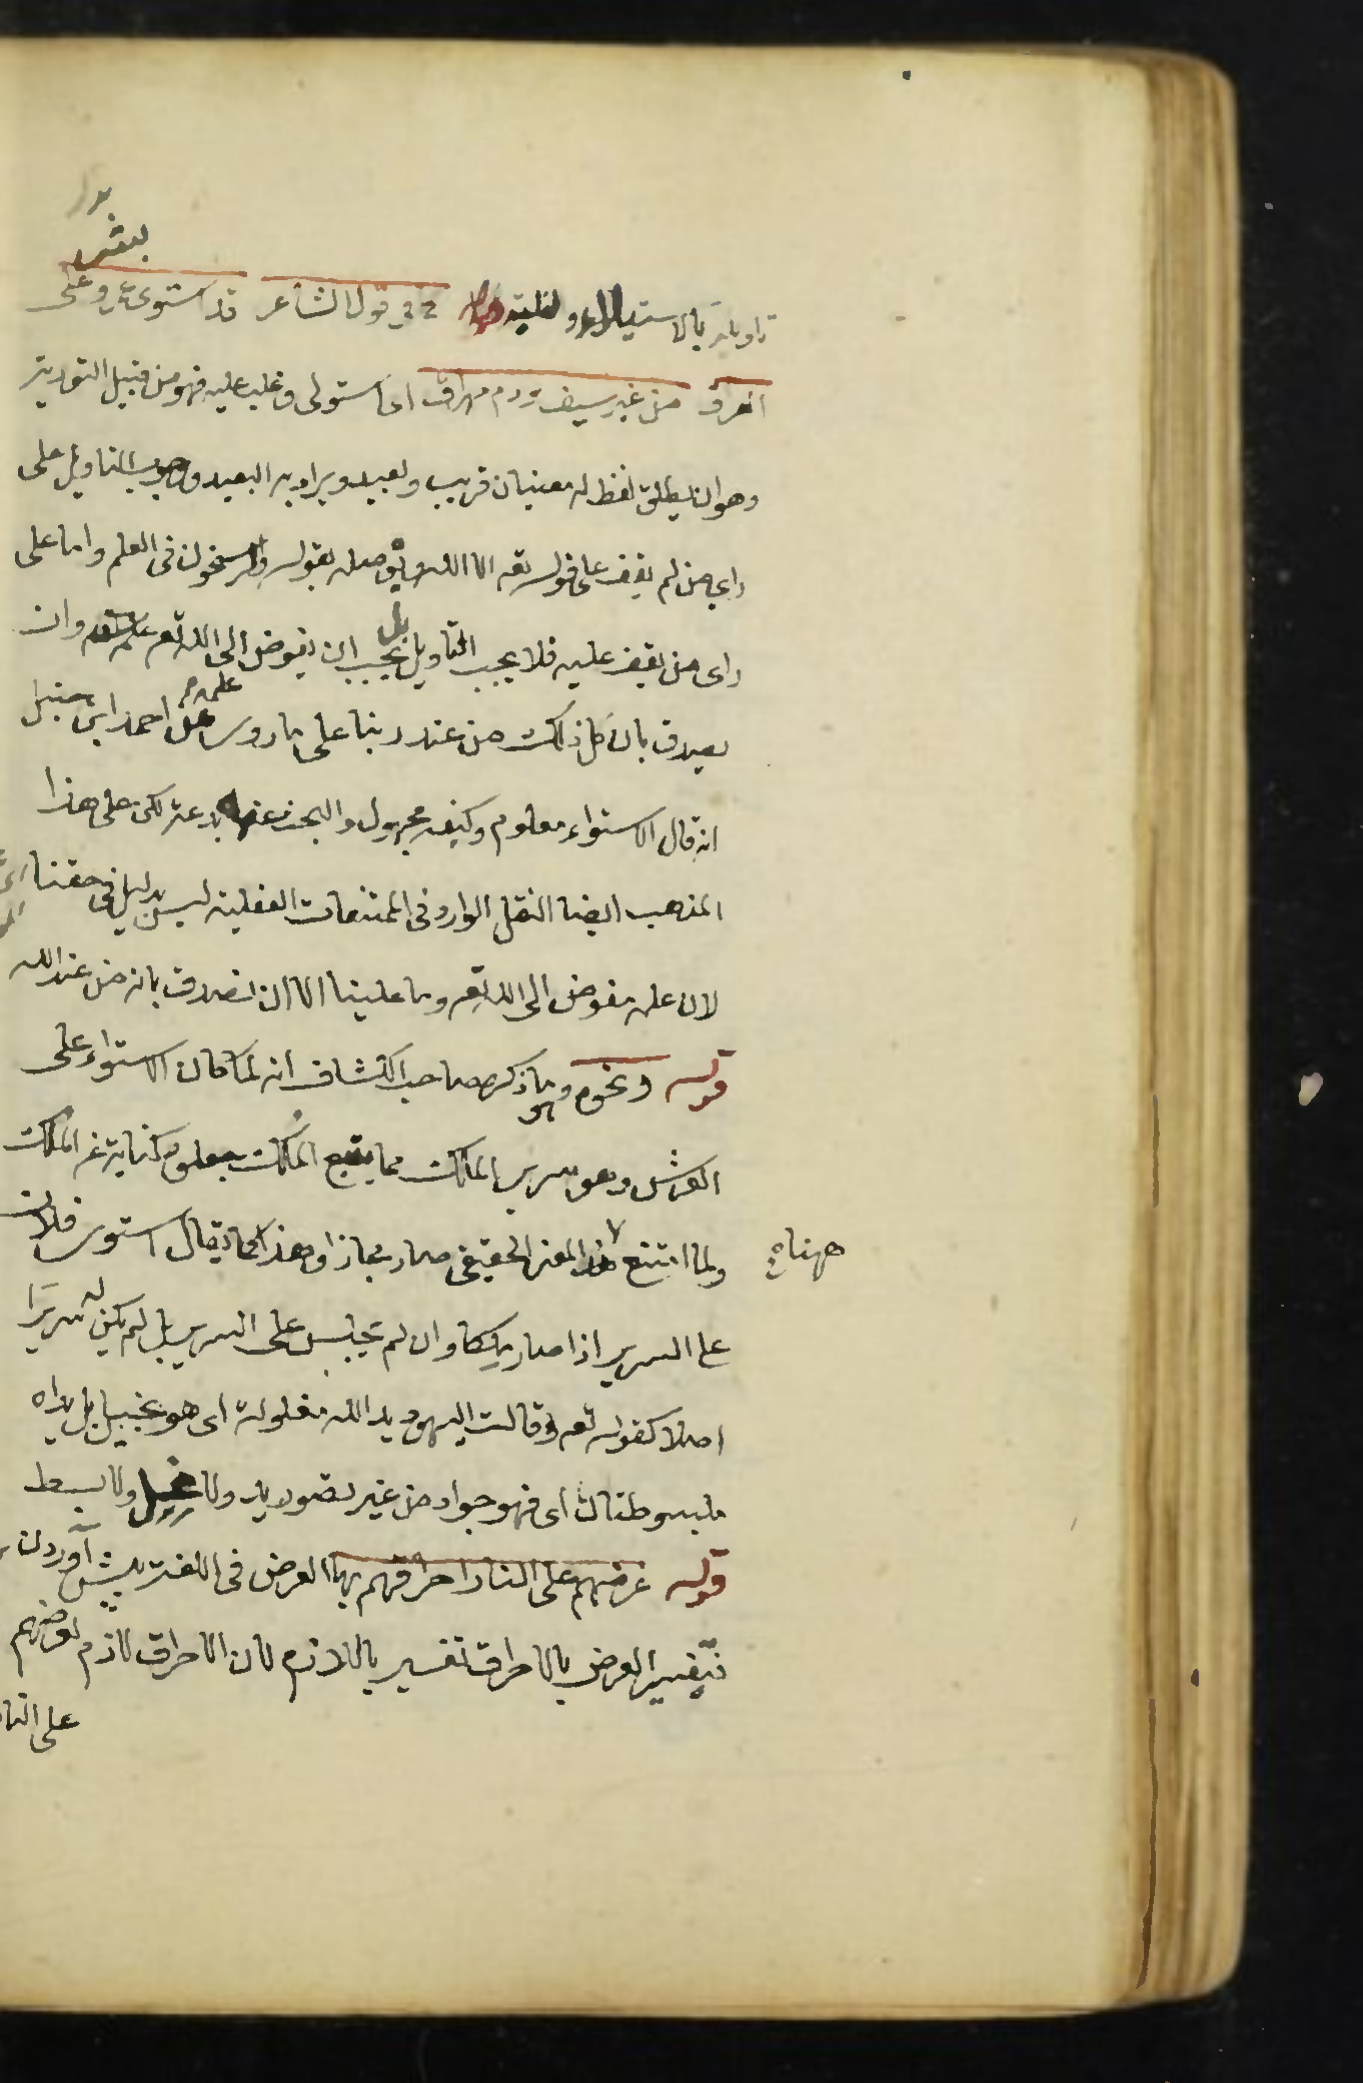 بشر
تاويله بالاستيلاء والغلبة كما في قول الشاعر قد استوى عمرو على
العراق من غير سيف ودم مهراق اى استولى وغلب عليه فهو من قبيل التورية
وهو ان يطلق لفظ له معنيان قريب وبعيد ويراد به البعيد ووجوب التاويل على
راى من لم يقف على قوله تعه الا الله ويوصله بقوله والراسخون فى العلم واما على
راى من يقف عليه فلا يجب التاويل بل يجب ان يفوض الى الله تعه علمه وان
يصدق بان كل ذلك من عند ربنا على ما روى عن احمد ابن حنبل
انه قال الاستواء معلوم وكيفه مجهول والبحث عنها بدعة لكن على هذا
المذهب ايضا النقل الوارد فى الممتنعات العقلية ليس بدليل فى حقنا
لان علمه مفوض الى الله تعه وما علينا الا ان نصدق بانه من عند الله
قوله ونحوه وهو ما ذكره صاحب الكشاف انه لما كان الاستواء على
العرش وهو سرير الملك مما يتبع الملك جعلوه كناية عن الملك
ولما امتنع المعنى الحقيقى صار مجازا وهذا كما يقال استوى فلان
ههنا
على السرير اذا صار ملكا وان لم يجلس على السرير بل لم يكن له سريرا
اصلا كقوله تعه وقالت اليهود يد الله مغلولة اى هو بخيل بل يداه
مبسوطتان اى فهو جواد من غير تصور يد ولا غل ولا بسط
قوله عرضهم على النار احراقهم بها العرض فى اللغة پيش آوردن
فتفسير العرض بالاحراق تفسير باللازم لان الاحراق لازم لعرضهم
على النار